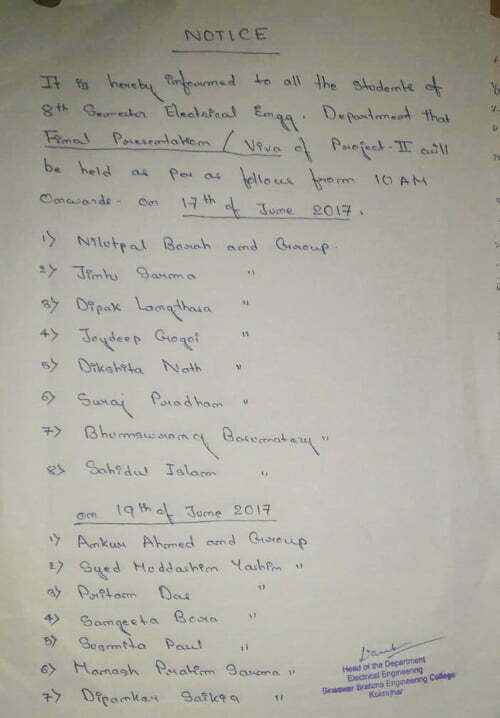 NOTICE
It is hereby informed to all the students of
8th Semester Electrical Engg. Department that
Final Presentation / Viva of Project-II will
be held as per as follows from 10 AM
Onwards - on 17th of June 2017.
1) Nilutpal Borah and Group.
2) Jintu Sarma "
3) Dipak Langthasa "
4) Joydeep Gogoi "
5) Dikshita Nath "
6) Suraj Pradhan "
7) Basumatary "
8) Sahidul Islam "
on 19th of June 2017
1) Ankur Ahmed and Group
2) Syed Muddashim Yashin "
3) Pritom Das "
4) Sangeeta Bora "
5) Susmita Paul "
6) Manash Pratim Sarma "
7) Dipankar Saikia "
Head of the Department
Electrical Engineering
Bineswar Brahma Engineering College
Kokrajhar